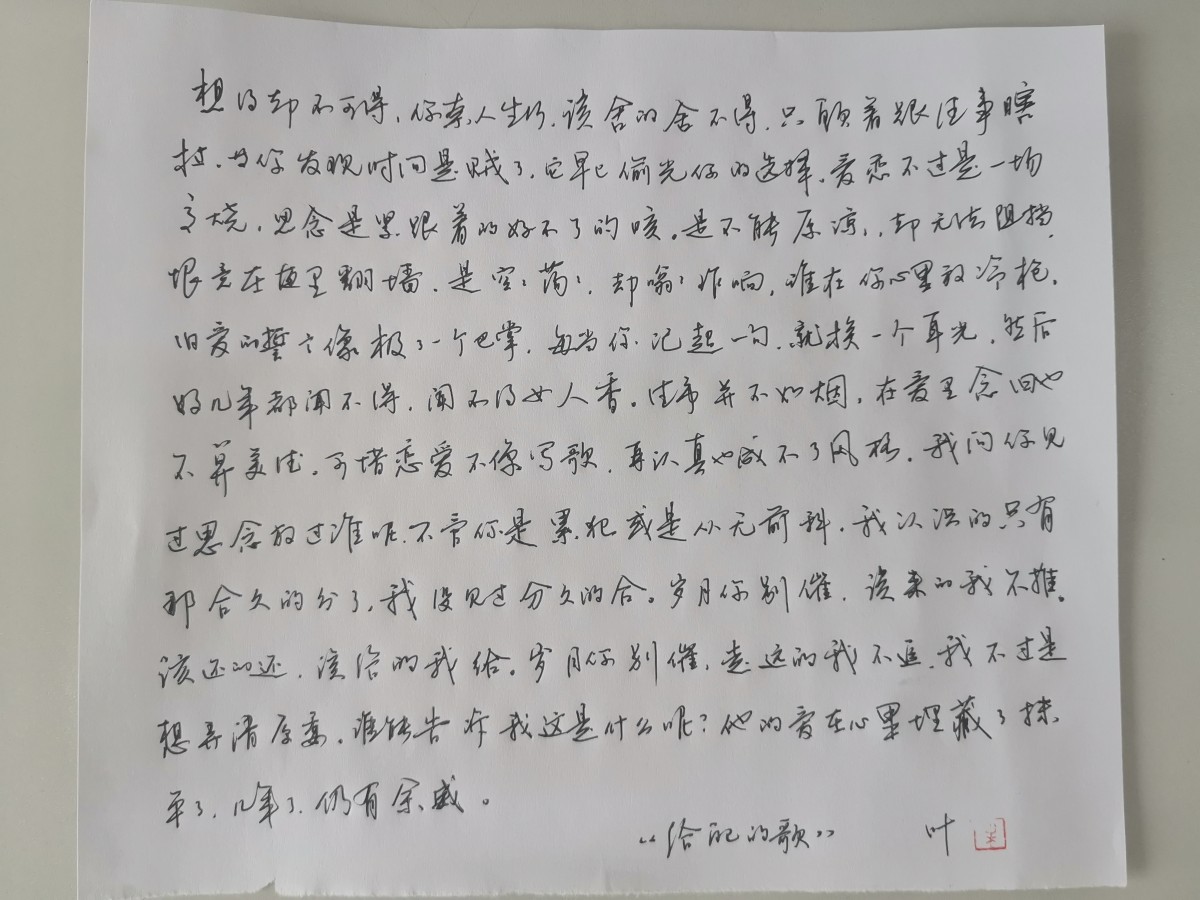 想得却不可得,你奈人生何,该舍的舍不得,只顾着跟往事瞎
扯,当你发现时间是贼了,它早已偷光你的选择。爱恋不过是一场
高烧,思念是紧跟着的好不了的咳。是不能原谅,却无法阻挡,
恨意在夜里翻墙,是空空荡荡,却嗡嗡作响,谁在你心里放冷枪。
旧爱的誓言像极了一个巴掌,每当你记起一句,就挨一个耳光,然后
好几年都闻不得,闻不得女人香。往事并不如烟,在爱里念旧也
不算美德。可惜恋爱不像写歌,再认真也成不了风格。我问你见
过思念放过谁呢,不管你是累犯或是从无前科。我认识的只有
那合久的分了,我没见过分久的合。岁月你别催,该来的我不推。
该还的还,该给的我给。岁月你别催,走远的我不追,我不过是
想弄清原委。谁能告诉我这是什么呢?他的爱在心里埋藏了,抹
平了,几年了,仍有余威。
“给自己的歌” 叶